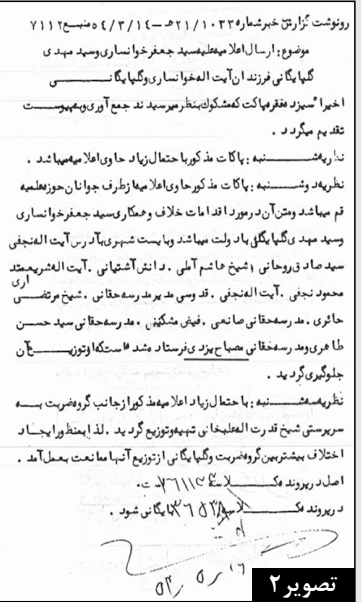 رونوشت گزارش خبر شماره ۲۱/۱۰۳۳ه‍ـ ۵۴/۳/۱۴ منبع ۷۱۱۲
موضوع : ارسال اعلامیه علیه سید جعفر خوانساری و سید مهدی
گلپایگانی فرزندان آیت اله خوانساری و گلپایگانی
اخیرا سیزده فقره پاکت که مشکوک بنظر میرسیدند جمع آوری و به پیوست
تقدیم میگردد .
نظریه شنبه : پاکات مذکور با احتمال زیاد حاوی اعلامیه میباشد .
نظریه دوشنبه : پاکات مذکور حاوی اعلامیه از طرف جوانان حوزه علمیه
قم میباشد و متن آن در مورد اقدامات خلاف و همکاری سید جعفر خوانساری
و سید مهدی گلپایگانی با دولت میباشد و بایست شهری بآدرس آیت اله نجفی
سید صادق روحانی . شیخ هاشم آملی . دانش آشتیانی . آیت اله شریعتمداری
محمود نجفی . آیت اله نجفی . قدوسی مدیر مدرسه حقانی . شیخ مرتضی
حائری . مدرسه حقانی صانعی . فیض مشکینی . مدرسه حقانی سید حسن
طاهری و مدرسه حقانی مصباح یزدی فرستاده شده است که از توزیع آن
جلوگیری گردید .
نظریه سه شنبه : با احتمال زیاد اعلامیه مذکور از جانب گروه ضربت به
سرپرستی شیخ قدرت اله علیخانی تهیه و توزیع گردید . لذا بمنظور ایجاد
اختلاف بیشتر بین گروه ضربت و گلپایگانی از توزیع آنها ممانعت بعمل آمد .
اصل در پرونده کلاسه
در پرونده کلاسه بایگانی شود .
تصویر ۲